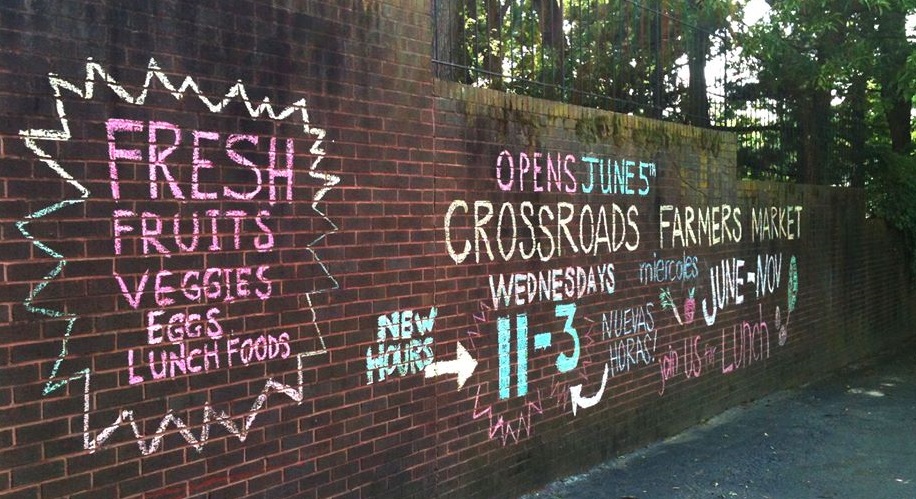 FRESH
FRUITS
VEGGIES
EGGS
LUNCH FOODS
OPENS JUNE 5TH
CROSSROADS FARMERS MARKET
WEDNESDAYS miercoles JUNE-NOV
NEW
HOURS
11-3
NUEVAS
HORAS!
join us for Lunch